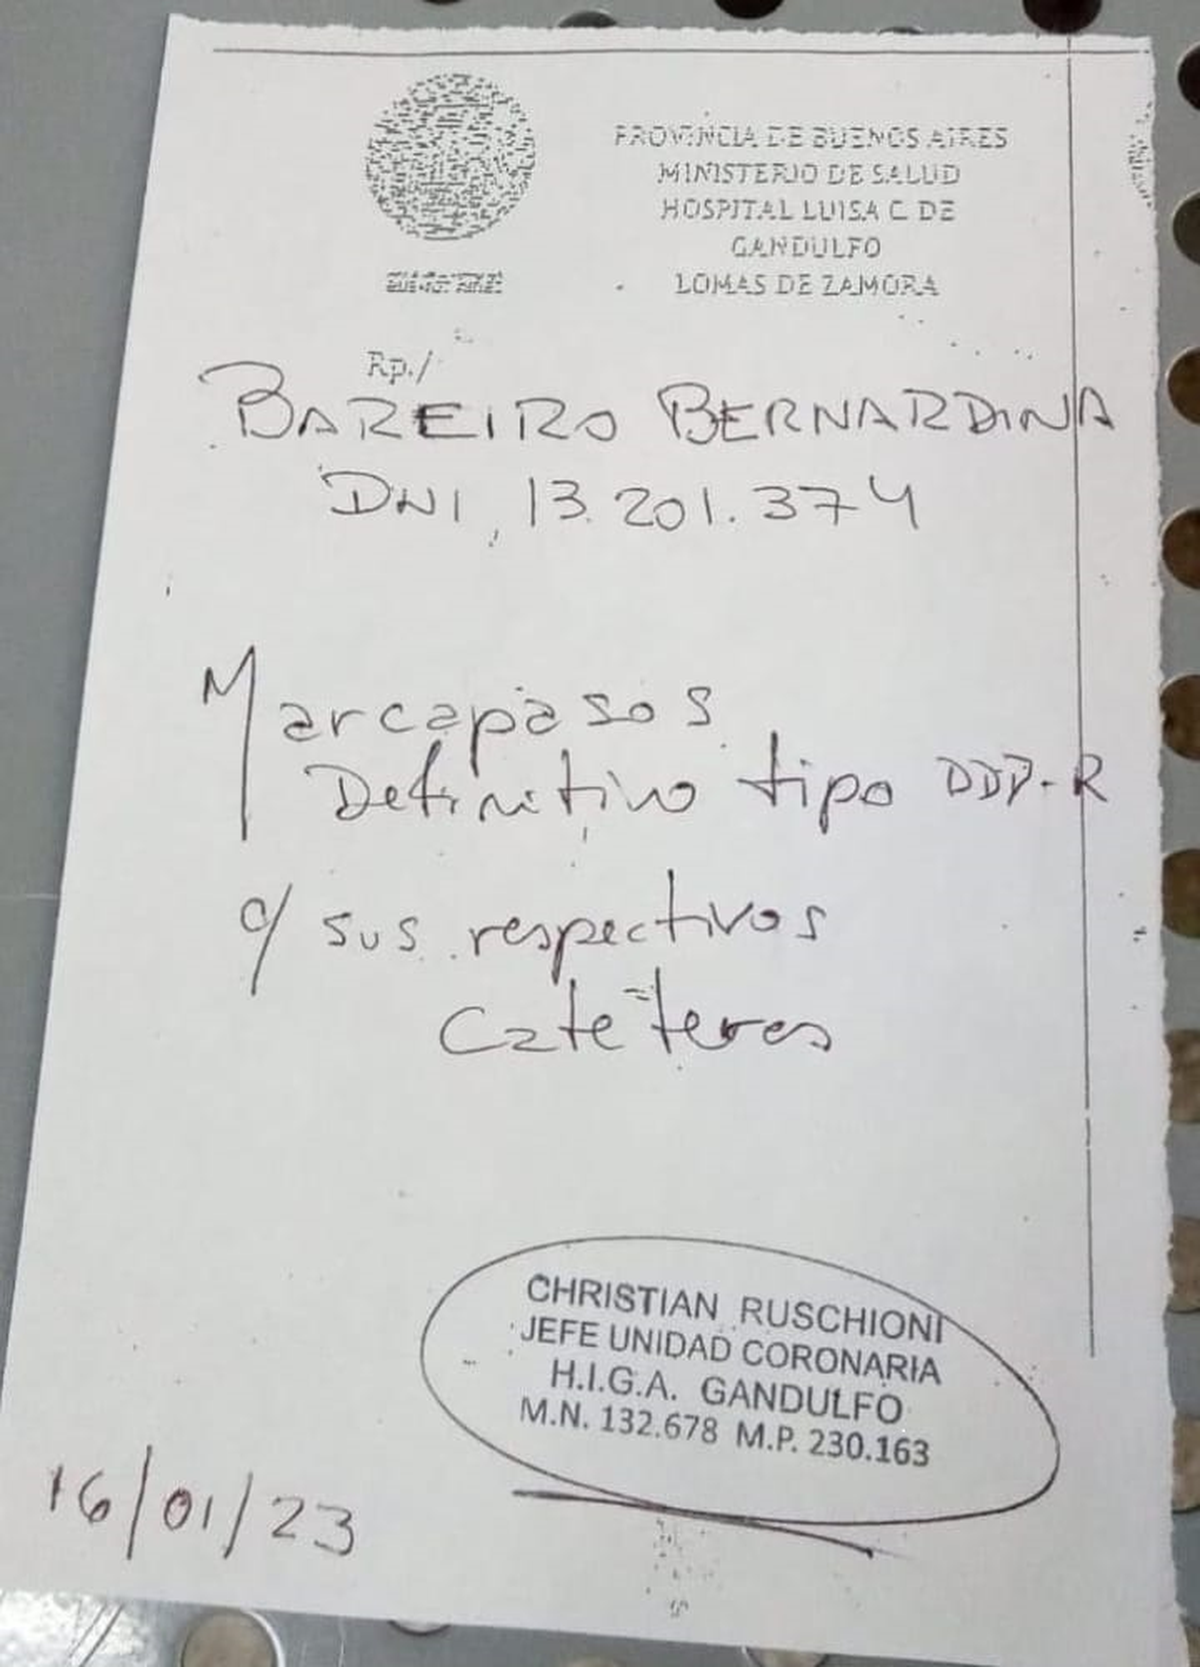 PROVINCIA DE BUENOS AIRES
MINISTERIO DE SALUD
HOSPITAL LUISA C. DE
GANDULFO
LOMAS DE ZAMORA
BUENOS AIRES
Rp./
BAREIRO BERNARDINA
DNI, 13.201.374
Marcapasos
Definitivo tipo DDD-R
c/ sus respectivos
Cateteres
CHRISTIAN RUSCHIONI
JEFE UNIDAD CORONARIA
H.I.G.A. GANDULFO
M.N. 132.678 M.P. 230.163
16/01/23